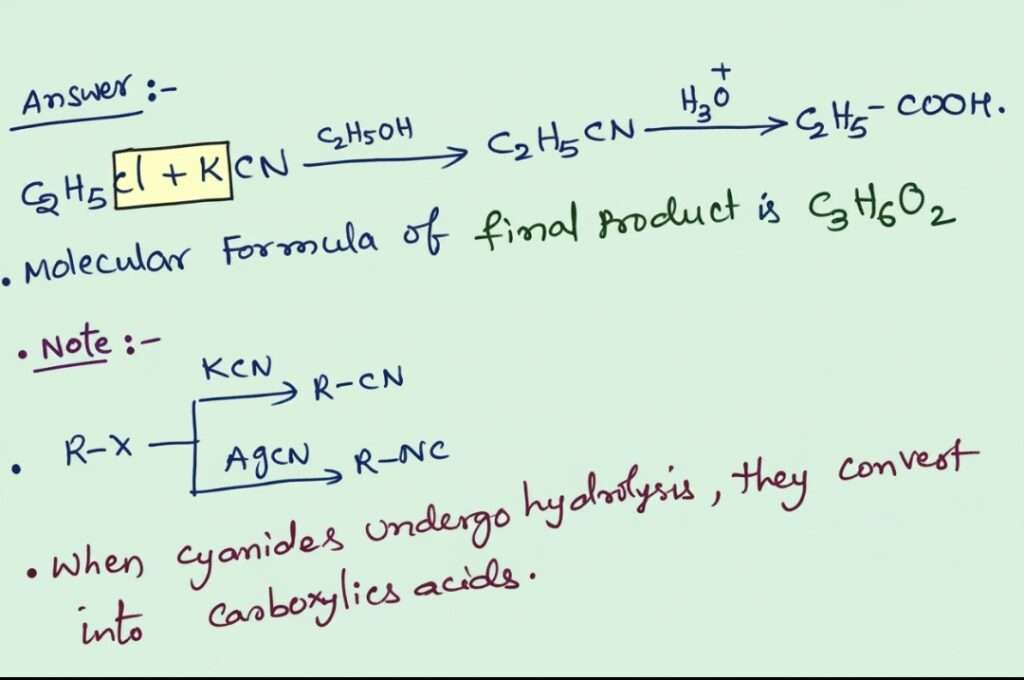 Answer :-
C2H5Cl + KCN —C2H5OH→ C2H5CN —H3O+→ C2H5-COOH.
• Molecular Formula of final product is C3H6O2
• Note :-
KCN → R-CN
• R-X
AgCN → R-NC
• When cyanides undergo hydrolysis, they convert
into carboxylics acids.